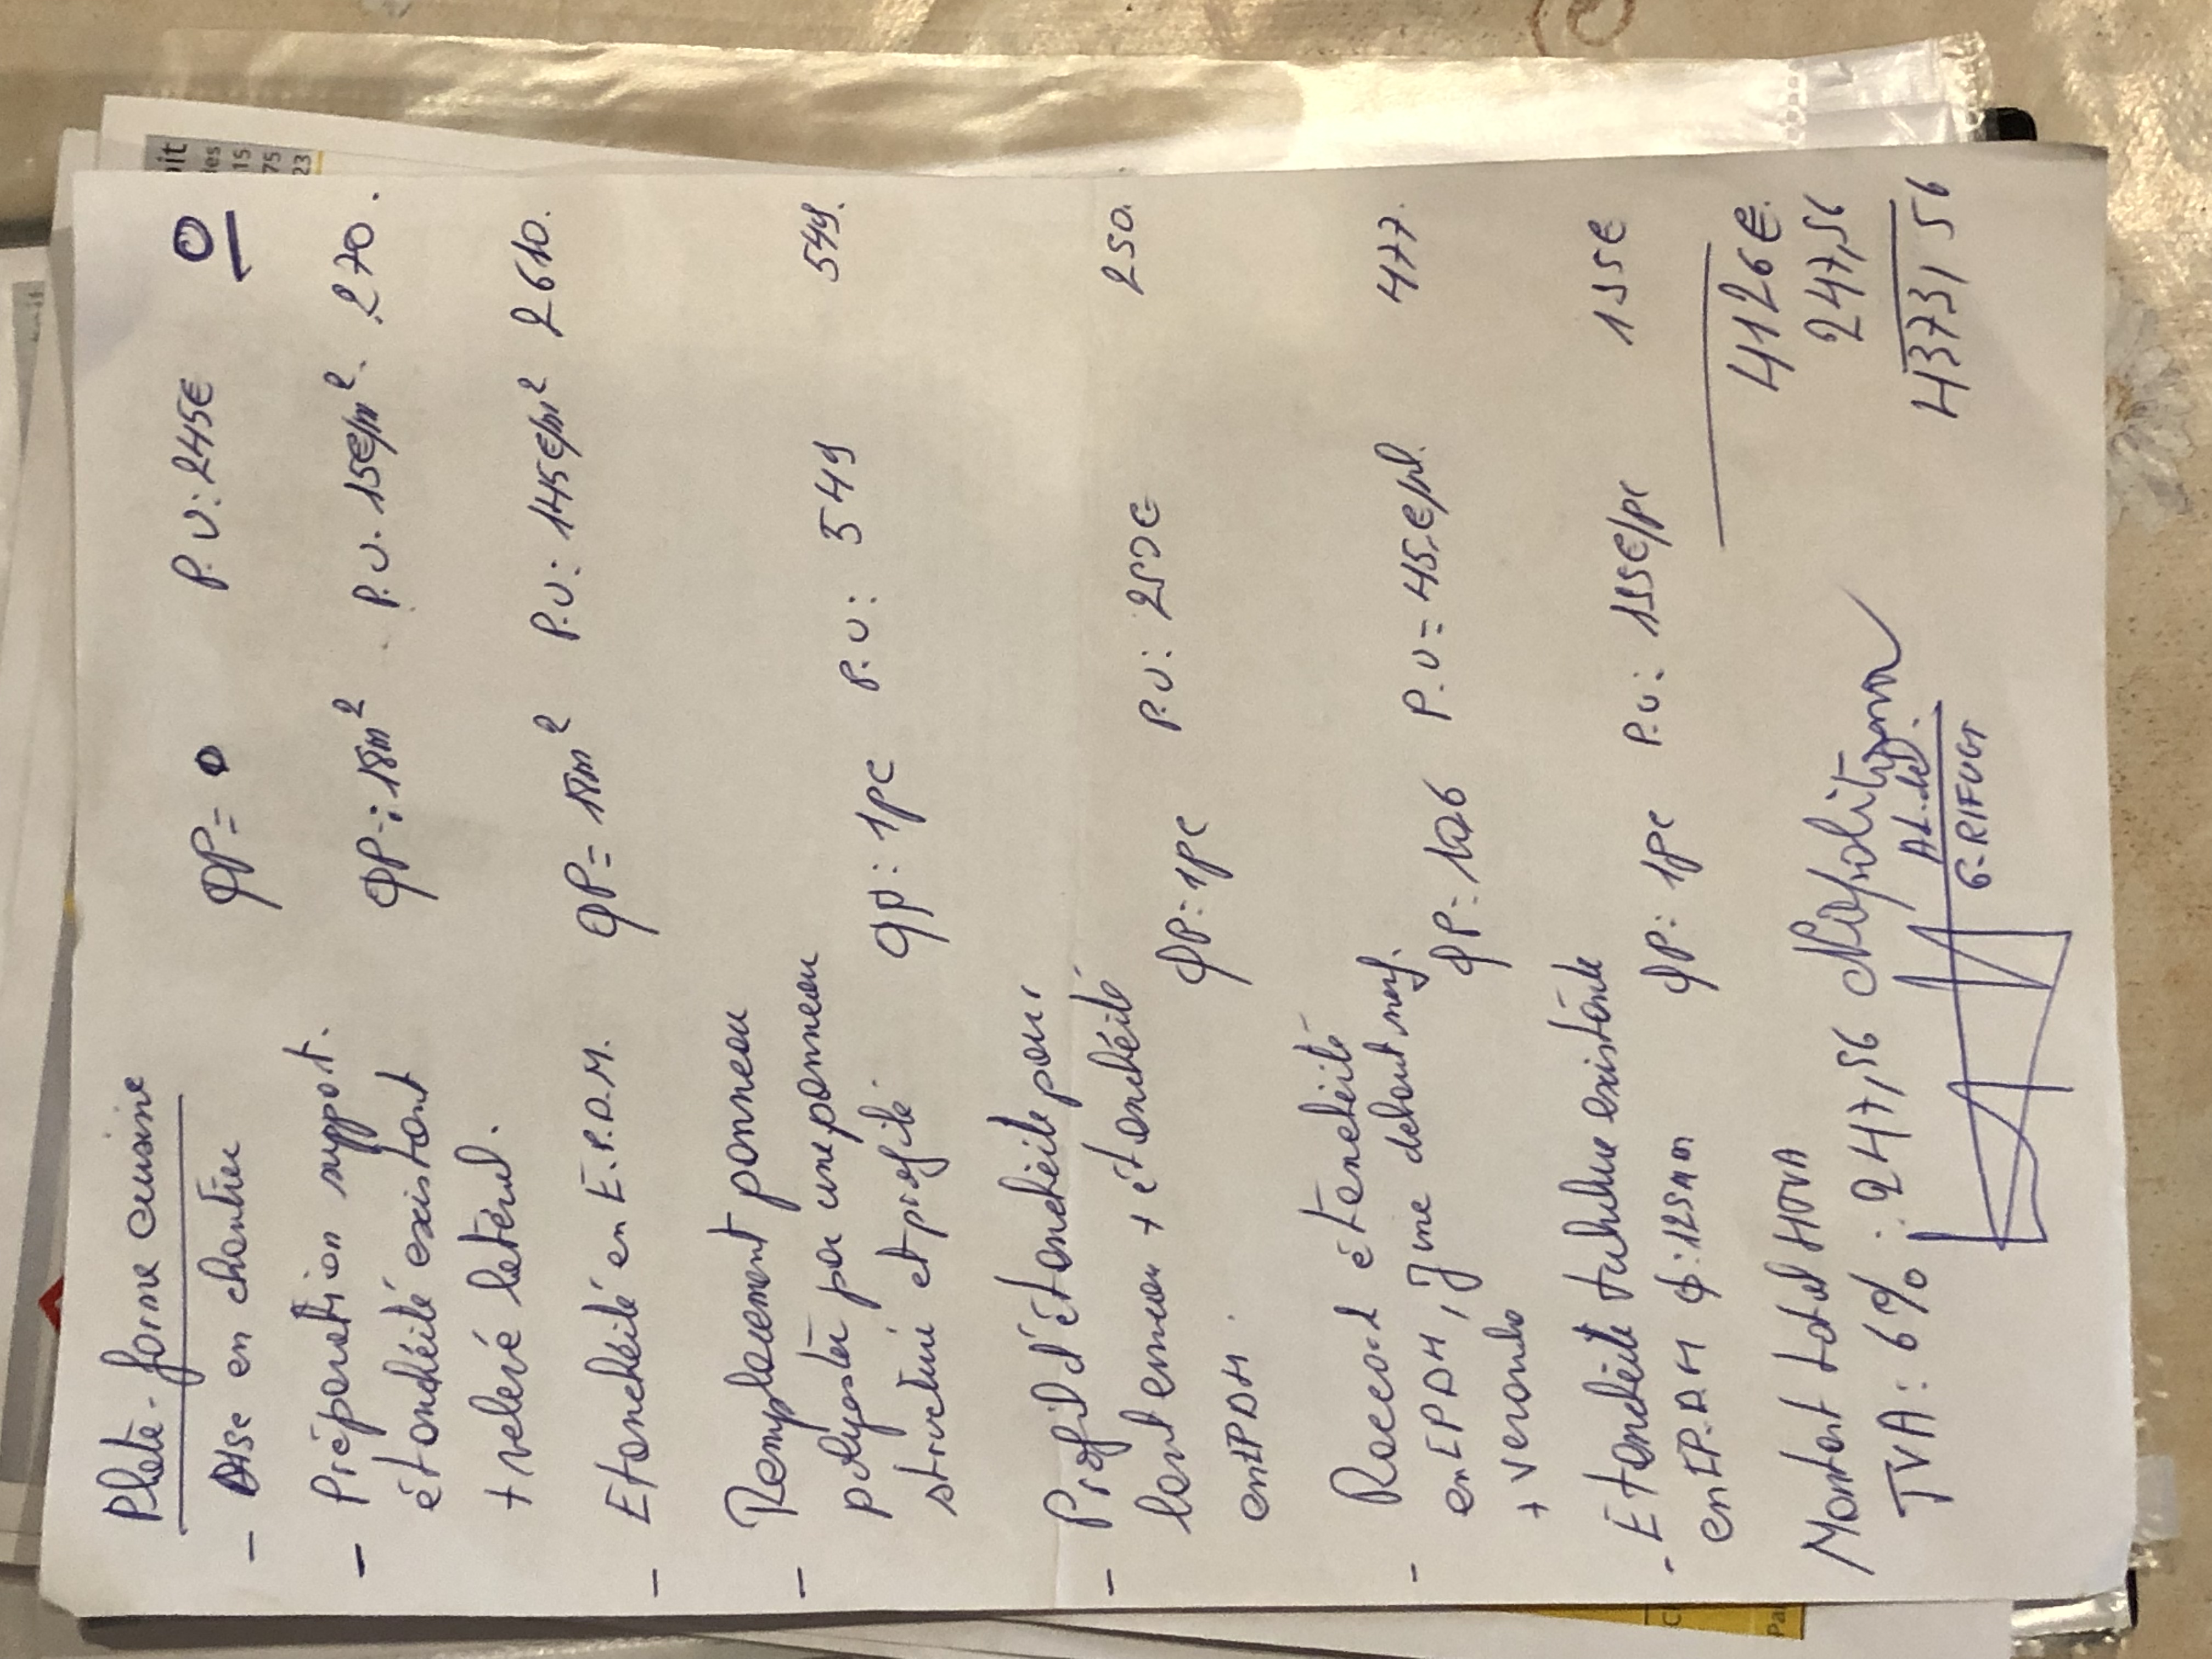 Plate-forme cuisine
- Mise en chantier QP= 0 P.U: 245€ 0
- Préparation support.
étanchéité existant QP-: 18m² P.U. 15€/m². 270.
+ relevé latéral.
- Etanchéité en E.P.D.M. QP= 18m² P.U: 145€/m² 2610.
- Remplacement panneau
polyester par une panneau
structuré et profilé. qp: 1pc P.U: 549 549.
- Profil d'étanchéité pour
lanterneau + étanchéité
en EPDM. QP: 1pc P.U: 250€ 250.
- Raccord étanchéité
en EPDM, debout neuf.
+ veranda QP: 10,6 P.U= 45,€/ml. 477.
- Etanchéité tubulure existante
en EP.D.M φ:125mm QP: 1pc P.U: 155€/pc 155€
Montant total HTVA 4126€.
TVA: 6% : 247,56 247,56
4373,56